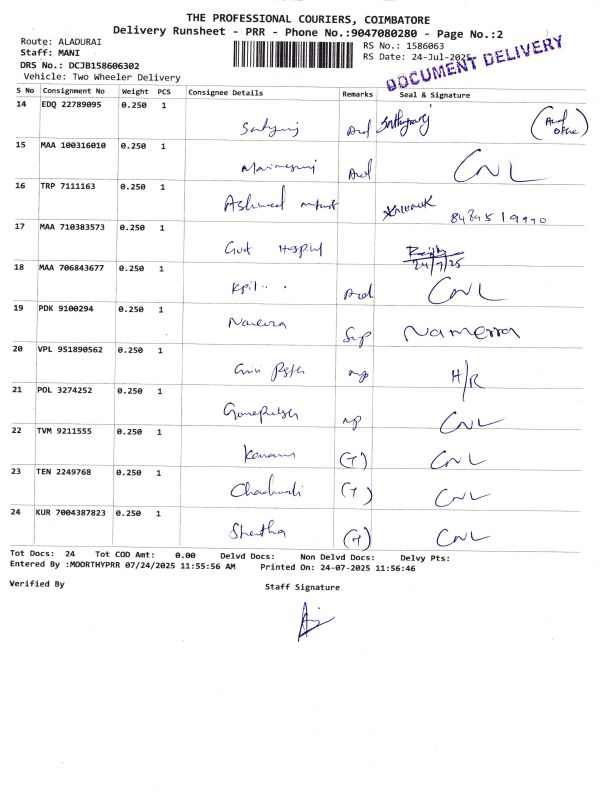 THE PROFESSIONAL COURIERS, COIMBATORE
Delivery Runsheet - PRR - Phone No.:9047080280 - Page No.:2
Route: ALADURAI
Staff: MANI
DRS No.: DCJB158606302
Vehicle: Two Wheeler Delivery
RS No.: 1586063
RS Date: 24-Jul-2025
DOCUMENT DELIVERY
S No Consignment No Weight PCS Consignee Details Remarks Seal & Signature
14 EDQ 22789095 0.250 1
15 MAA 100316010 0.250 1 CNL
16 TRP 7111163 0.250 1
17 MAA 710383573 0.250 1 Govt Hospital 24/7/25
18 MAA 706843677 0.250 1 CNL
19 PDK 9100294 0.250 1 Namerra
20 VPL 951890562 0.250 1 H/R
21 POL 3274252 0.250 1 CNL
22 TVM 9211555 0.250 1 (T) CNL
23 TEN 2249768 0.250 1 (T) CNL
24 KUR 7004387823 0.250 1 (T) CNL
Tot Docs: 24 Tot COD Amt: 0.00 Delvd Docs: Non Delvd Docs: Delvy Pts:
Entered By :MOORTHYPRR 07/24/2025 11:55:56 AM Printed On: 24-07-2025 11:56:46
Verified By Staff Signature